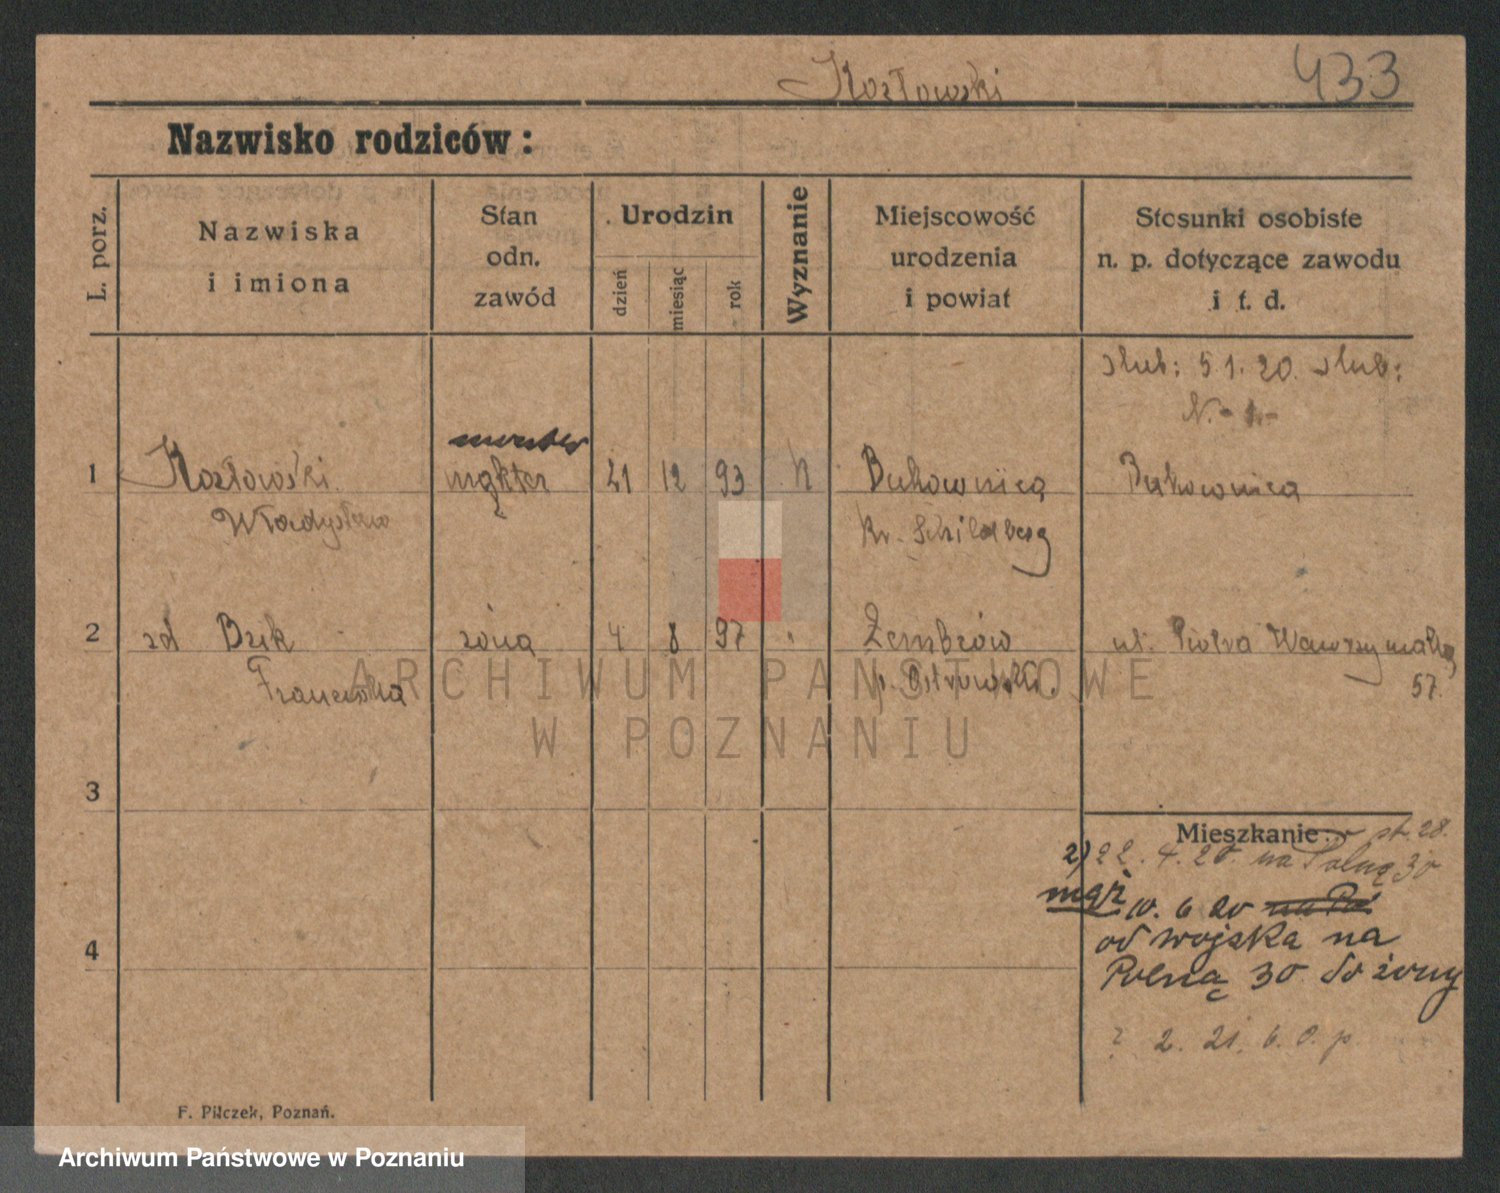 Kozłowski 433
Nazwisko rodziców:
L. porz.
Nazwiska
i imiona
Stan
odn.
zawód
Urodzin
dzień
miesiąc
rok
Wyznanie
Miejscowość
urodzenia
i powiat
Stosunki osobiste
n. p. dotyczące zawodu
i t. d.
slub: 5 1. 20. slub:
monter
1 Kozłowski 21 12 93 Bukownica Bukownica
Władysław kr. Schildberg
2 zd Bzik żona 4 8 97 ul. Piotra Wawrzyniaka
Franciszka p. Ostrowski. 57.
ARCHIWUM PAŃSTWOWE
W POZNANIU
3
Mieszkanie: st. 28.
2) 22. 4. 20. na Polną 30
mąż 10. 6 20 na Po
od wojska na
4 Polną 30 do żony
? 2. 21. 6. 0. p
F. Pilczek, Poznań.
Archiwum Państwowe w Poznaniu